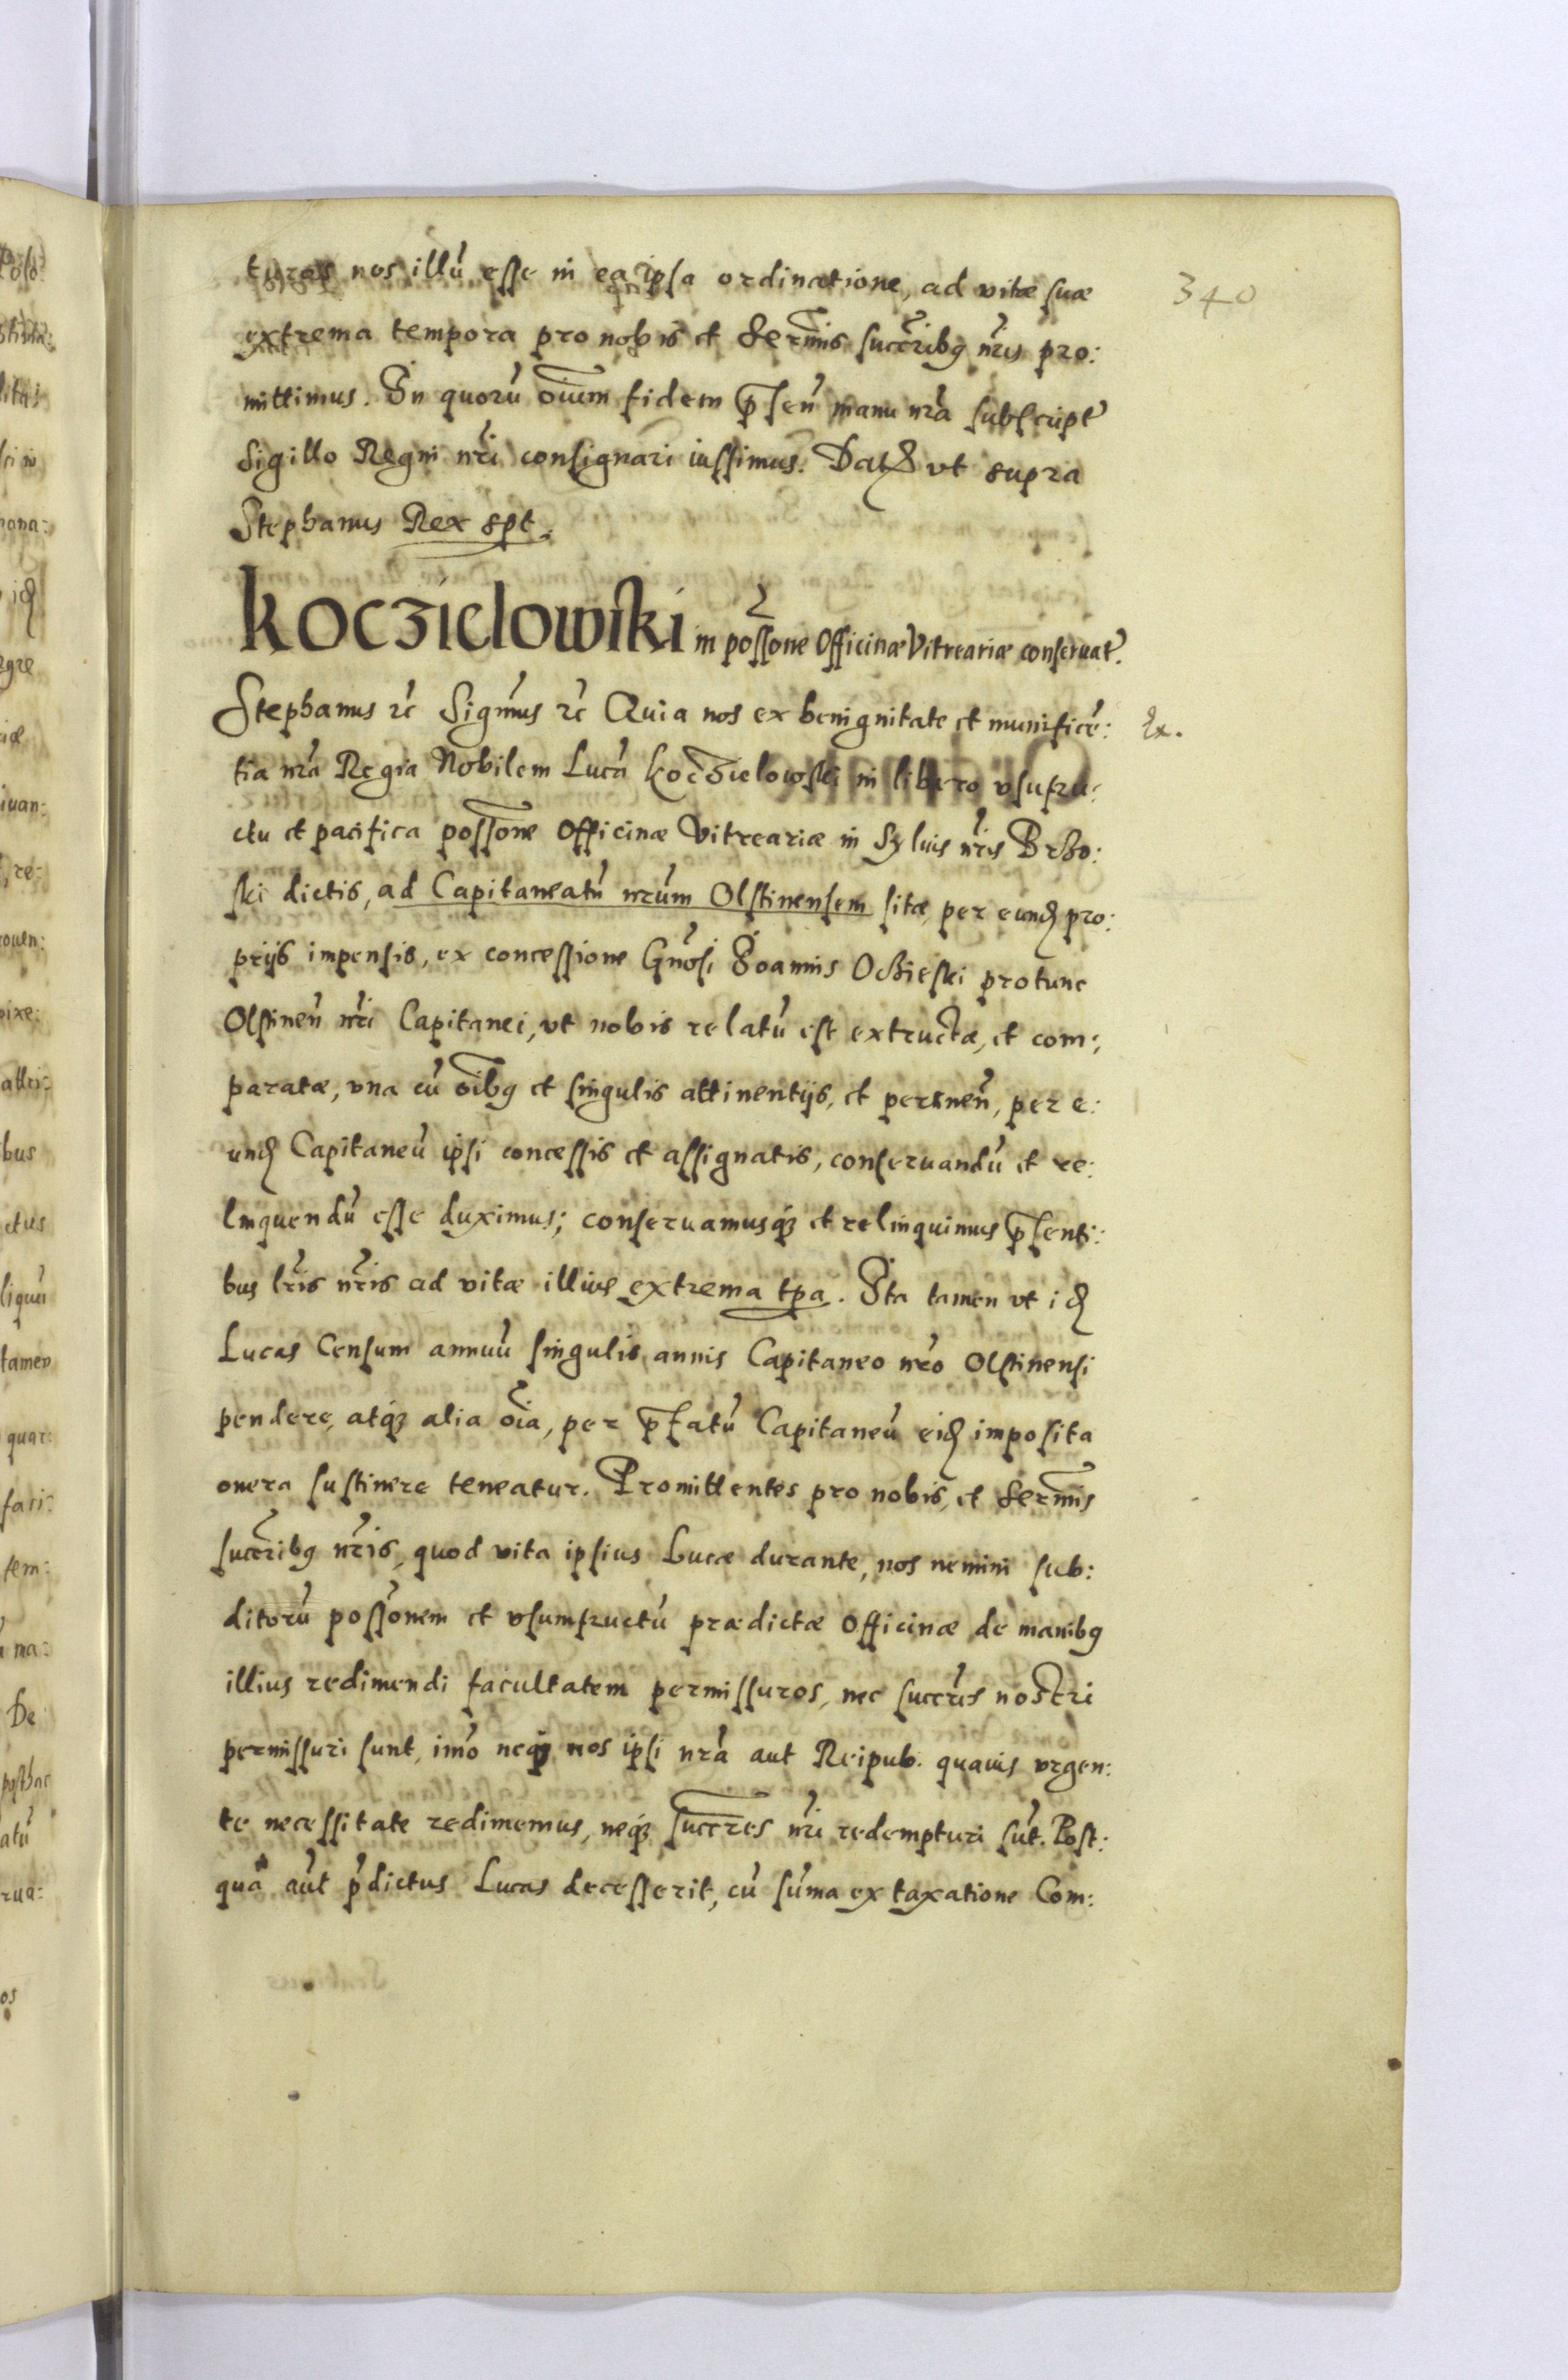 turos nos illũ esse in ea ipsa ordinatione, ad vitæ suæ
340
extrema tempora pro nobis et Serm̃is succ̃ribq nr̃is pro:
mittimus. In quorũ oĩum fidem p̃sen̄ manu nr̃a subscript̃
Sigillo Regni nr̃i consignari iussimus. Dat̃ vt supra
Stephanus Rex sp̃t
Koczielowski in poss̃one Officinæ Vitreariæ conseruat̃.
Stephanus rc̃ Signm̃us rc̃ Quia nos ex benignitate et munificẽ:
tia nr̃a Regia Nobilem Lucã Koczielowski in libero vsufru:
ctu et pacifica poss̃one Officinæ Vitreariæ in Syluis nr̃is Brzo:
ski dictis, ad Capitaneatũ nr̃um Olstinensem sitæ, per eund̃ pro:
prijs impensis, ex concessione Gnõsi Ioannis Oczieski protunc
Olstineñ nr̃i Capitanei, vt nobis relatũ est extructæ, et com:
paratæ, vna cũ oĩbq et singulis attinentijs, et pertineñ, per e:
und̃ Capitaneũ ipsi concessis et assignatis, conseruandũ et re:
linquendũ esse duximus; conseruamusq; et relinquimus p̃senti:
bus lr̃is nr̃is ad vitæ illius extrema tp̃a. Ita tamen vt id̃
Lucas Censum annuũ singulis annis Capitaneo nr̃o Olstinensi
pendere, atq; alia oĩa, per p̃fatũ Capitaneũ eid̃ imposita
onera sustinere teneatur. Promittentes pro nobis, et Serm̃is
succ̃ribq nr̃is, quod vita ipsius Lucæ durante, nos nemini sub:
ditorũ poss̃onem et vsumfructũ prædictæ Officinæ de manibq
illius redimendi facultatem permissuros, nec succr̃es nostri
permissuri sunt, imõ neq; nos ipsi nr̃a aut Reipub. quauis vrgen:
te necessitate redimemus, neq; succr̃es nr̃i redempturi sũt. Post:
quã aũt p̃dictus Lucas decesserit, cũ sũma ex taxatione Com: